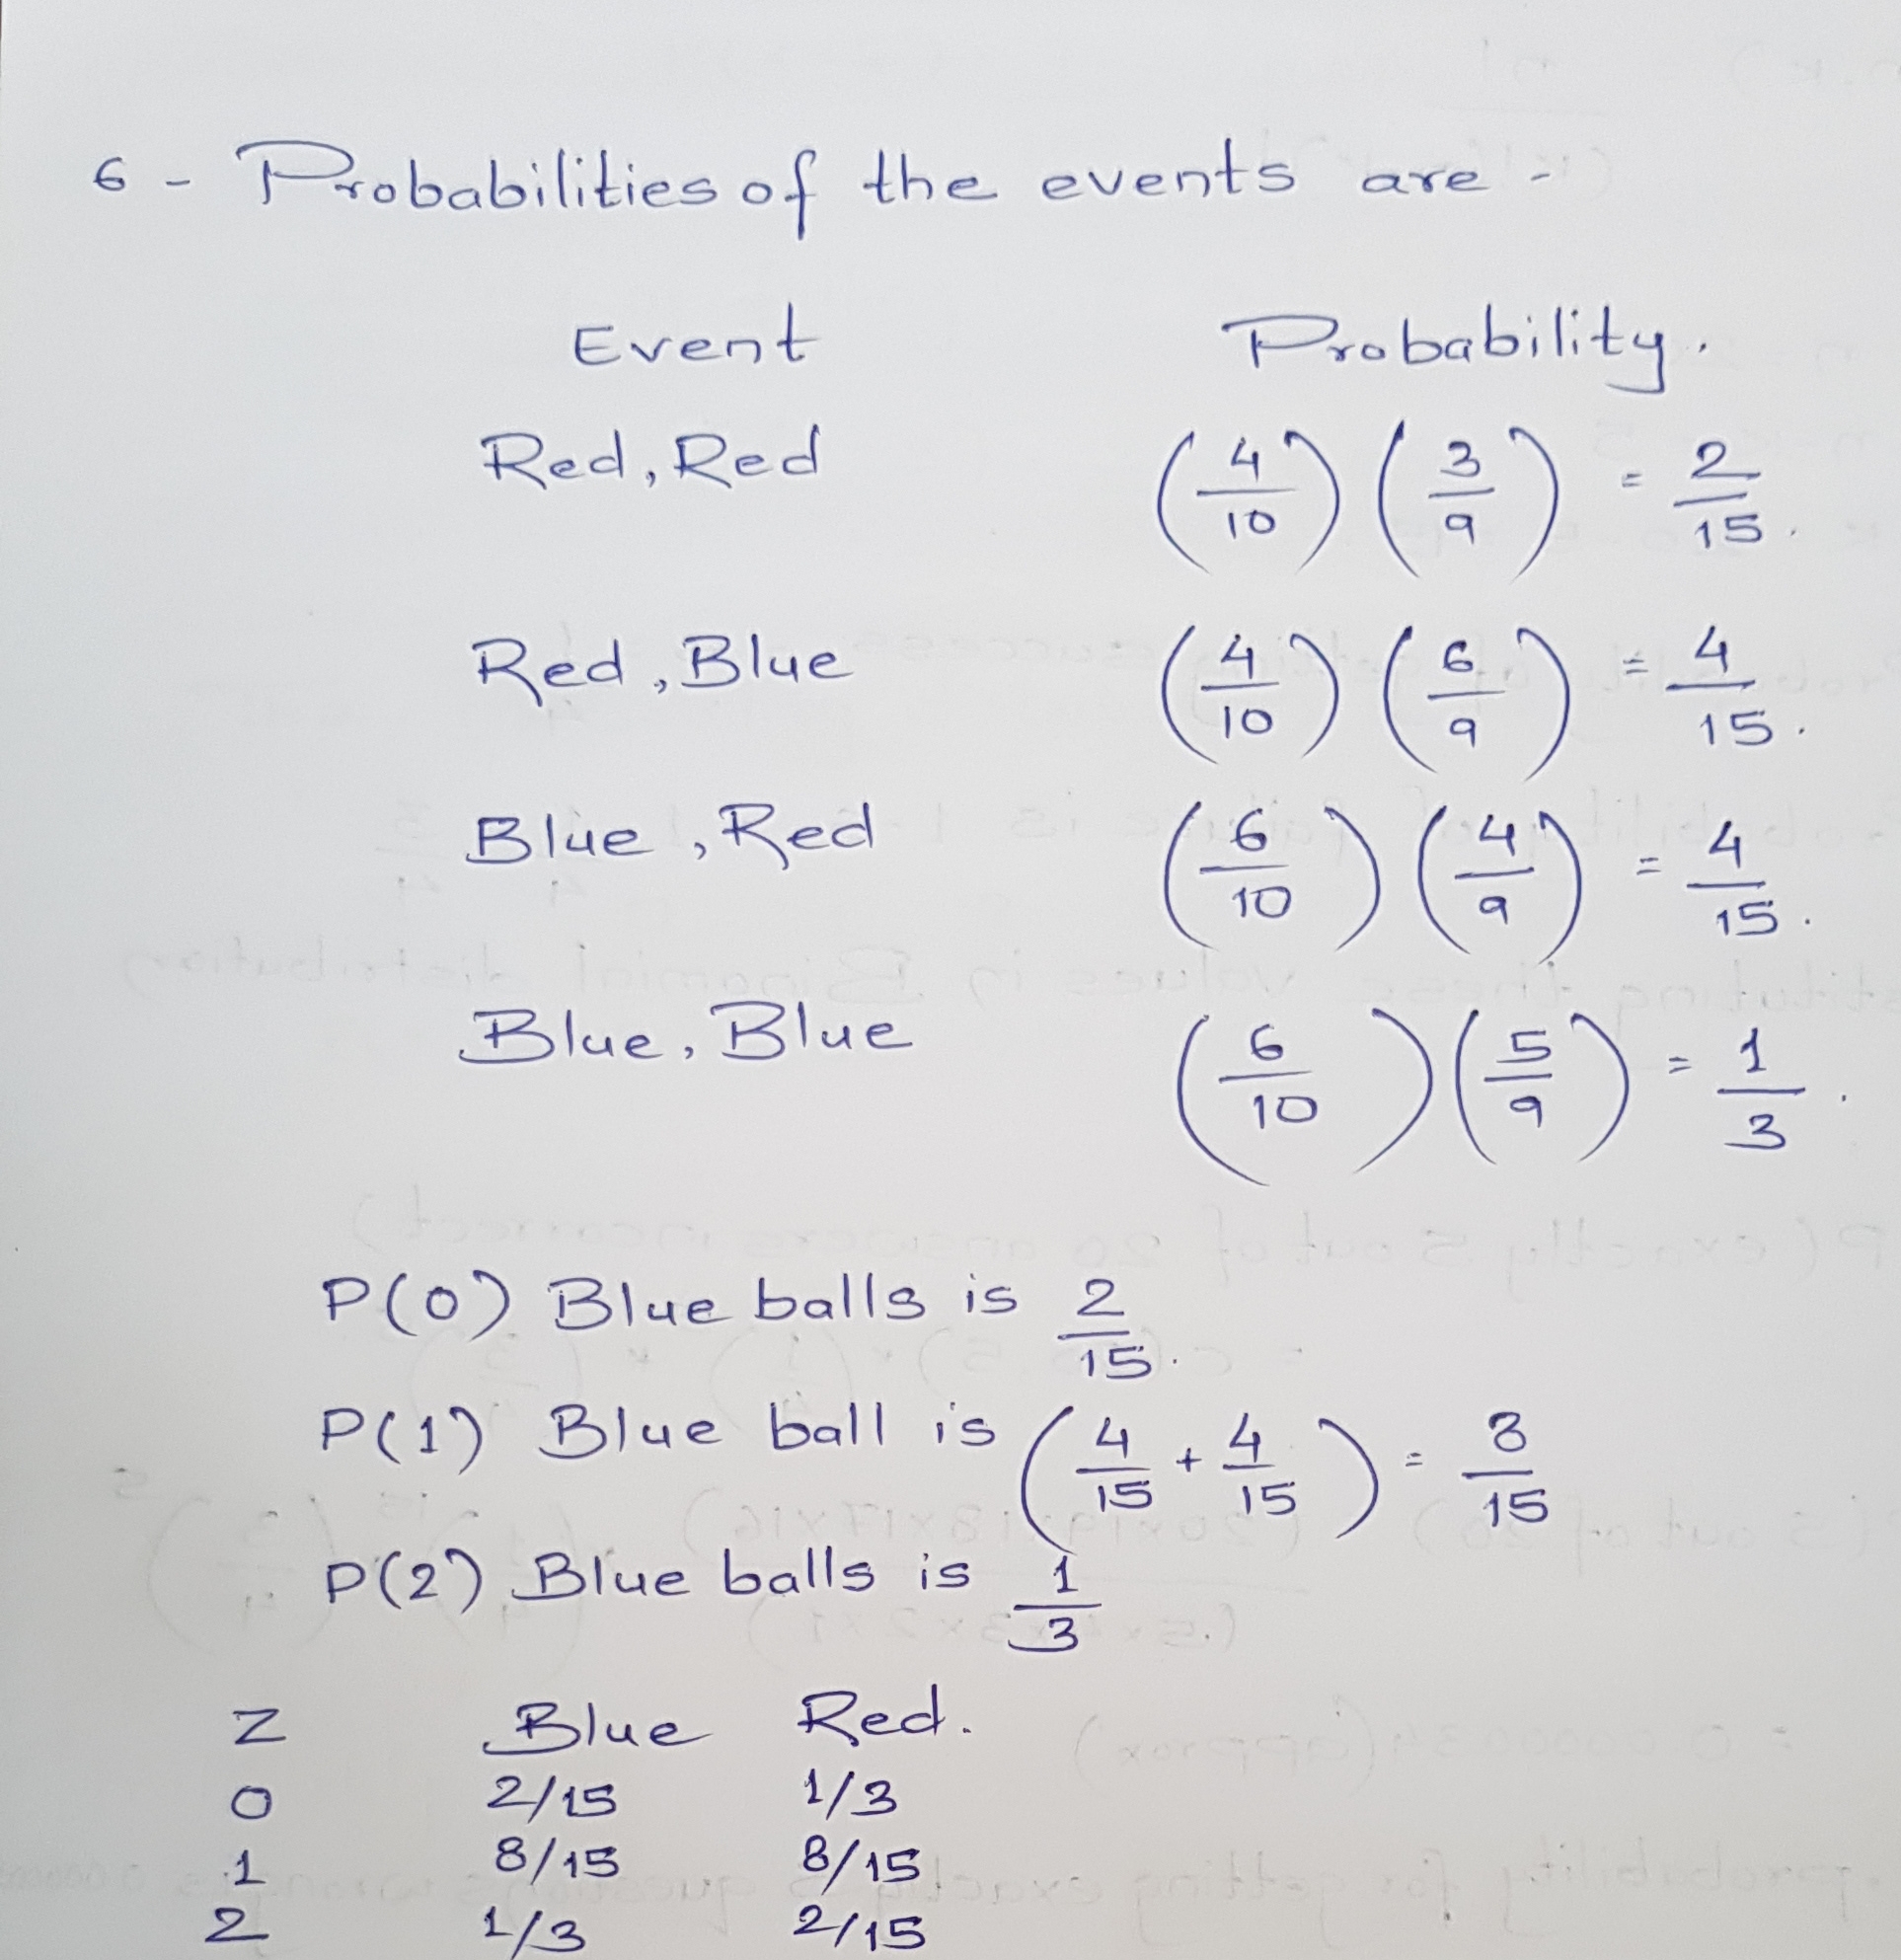 6 - Probabilities of the events are -
Event Probability.
Red, Red (4/10) (3/9) = 2/15.
Red, Blue (4/10) (6/9) = 4/15.
Blue, Red (6/10) (4/9) = 4/15.
Blue, Blue (6/10) (5/9) = 1/3.
P(0) Blue balls is 2/15.
P(1) Blue ball is (4/15 + 4/15) = 8/15
P(2) Blue balls is 1/3
Z Blue Red.
0 2/15 1/3
1 8/15 8/15
2 1/3 2/15